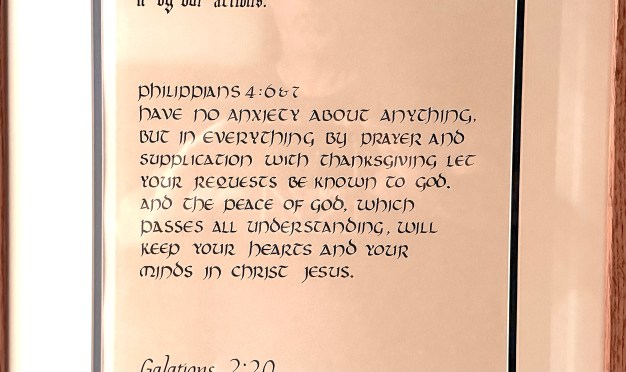 it by our actions.
Philippians 4:6&7
Have no anxiety about anything,
but in everything by prayer and
supplication with thanksgiving let
your requests be known to God.
And the peace of God, which
passes all understanding, will
keep your hearts and your
minds in Christ Jesus.
Galations 2:20